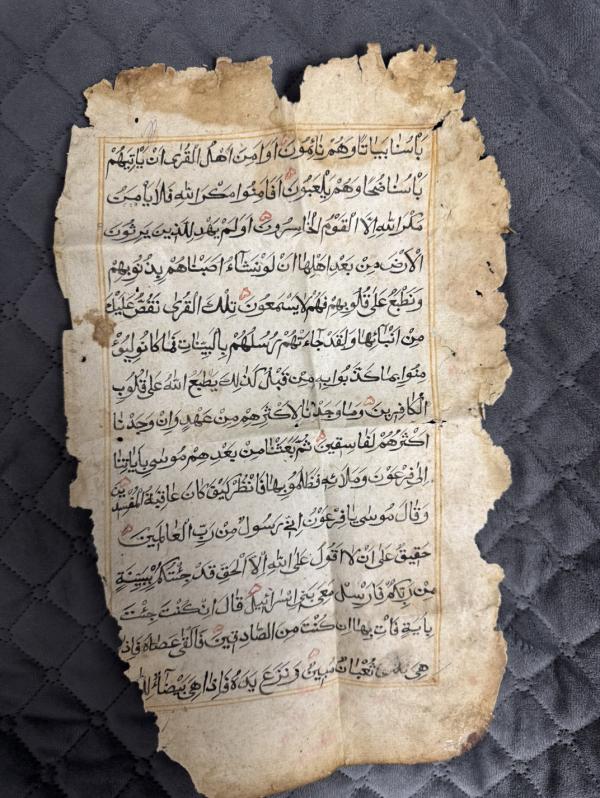 بَاْسُنَا بَيَاتًا وَهُمْ نَائِمُونَ اَوَاَمِنَ اَهْلُ القُرٰى اَنْ يَاْتِيَهُمْ
بَاْسُنَا ضُحًا وَهُمْ يَلْعَبُونَ اَفَاَمِنُوا مَكْرَ اللهِ فَلَا يَاْمَنُ
مَكْرَ اللهِ اِلَّا القَوْمُ الْخَاسِرُونَ اَوَلَمْ يَهْدِ لِلَّذِينَ يَرِثُونَ
الْاَرْضَ مِنْ بَعْدِ اَهْلِهَا اَنْ لَوْ نَشَاءُ اَصَبْنَاهُمْ بِذُنُوبِهِمْ
وَنَطْبَعُ عَلٰى قُلُوبِهِمْ فَهُمْ لَا يَسْمَعُونَ تِلْكَ القُرٰى نَقُصُّ عَلَيْكَ
مِنْ اَنْبَائِهَا وَلَقَدْ جَاءَتْهُمْ رُسُلُهُمْ بِالْبَيِّنَاتِ فَمَا كَانُوا لِيُؤْ
مِنُوا بِمَا كَذَّبُوا بِهِ مِنْ قَبْلُ كَذٰلِكَ يَطْبَعُ اللهُ عَلٰى قُلُوبِ
الْكَافِرِينَ وَمَا وَجَدْنَا لِاَكْثَرِهِمْ مِنْ عَهْدٍ وَاِنْ وَجَدْنَا
اَكْثَرَهُمْ لَفَاسِقِينَ ثُمَّ بَعَثْنَا مِنْ بَعْدِهِمْ مُوسٰى بِاٰيَاتِنَا
اِلٰى فِرْعَوْنَ وَمَلَائِهِ فَظَلَمُوا بِهَا فَانْظُرْ كَيْفَ كَانَ عَاقِبَةُ الْمُفْسِدِينَ
وَقَالَ مُوسٰى يَا فِرْعَوْنُ اِنِّي رَسُولٌ مِنْ رَبِّ الْعَالَمِينَ
حَقِيقٌ عَلٰى اَنْ لَا اَقُولَ عَلَى اللهِ اِلَّا الْحَقَّ قَدْ جِئْتُكُمْ بِبَيِّنَةٍ
مِنْ رَبِّكُمْ فَاَرْسِلْ مَعِيَ بَنِي اِسْرَائِيلَ قَالَ اِنْ كُنْتَ جِئْتَ
بِاٰيَةٍ فَاْتِ بِهَا اِنْ كُنْتَ مِنَ الصَّادِقِينَ فَاَلْقٰى عَصَاهُ فَاِذَا
هِيَ ثُعْبَانٌ مُبِينٌ وَنَزَعَ يَدَهُ فَاِذَا هِيَ بَيْضَاءُ